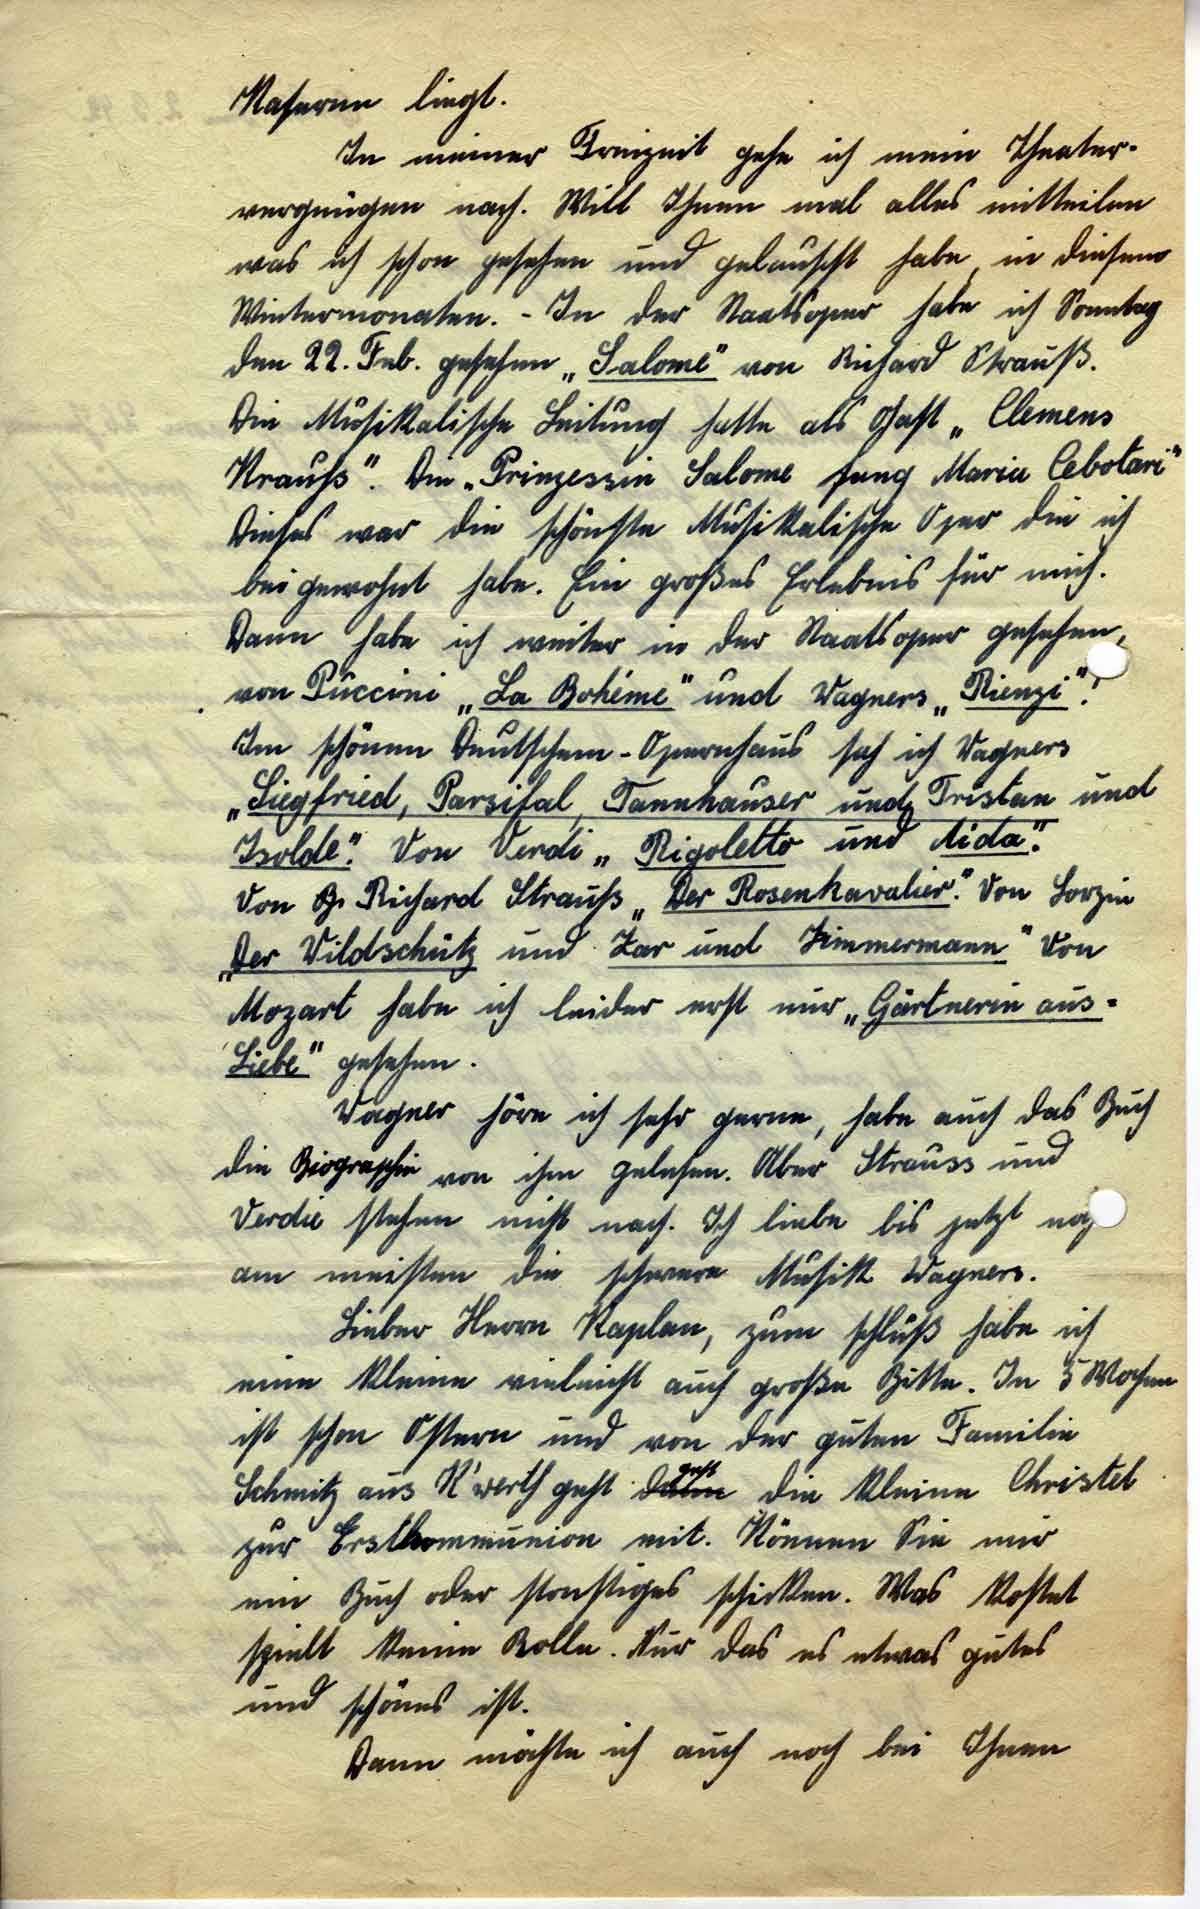 Kaserne liegt.
In meiner Freizeit gehe ich mein Theater-
vergnügen nach. Will Ihnen mal alles mitteilen
was ich schon gesehen und gelauscht habe, in diesem
Wintermonaten. - In der Staatsoper habe ich Sonntag
den 22. Feb. gesehen „Salome" von Richard Strauß.
Die Musikalische Leitung hatte als Gast „Clemens
Krauß". Die „Prinzessin Salome sang Maria Cebotari"
Dieses war die schönste Musikalische Oper die ich
bei gewohnt habe. Ein großes Erlebnis für mich.
Dann habe ich weiter in der Staatsoper gesehen,
von Puccini „La Bohéme" und Wagners „Rienzi"!
Im schönen Deutschem-Opernhaus sah ich Wagners
„Siegfried, Parsifal, Tannhauser und Tristan und
Isolde". Von Verdi „Rigoletto und Aida".
Von Richard Strauß „Der Rosenkavalier". Von Lorzin
„Der Wildschütz und Zar und Zimmermann" Von
Mozart habe ich leider erst nur „Gärtnerin aus-
Liebe" gesehen.
Wagner höre ich sehr gerne, habe auch das Buch
die Biographie von ihm gelesen. Aber Strauss und
Verdie stehen nicht nach. Ich liebe bis jetzt noch
am meisten die schwere Musik Wagners.
Lieber Herrn Kaplan, zum schluß habe ich
eine kleine vieleicht auch große Bitte. In 5 Wochen
ist schon Ostern und von der guten Familie
Schmitz aus K'werth geht die kleine Christel
zur Erstkommunion mit. Können Sie mir
ein Buch oder sonstiges schicken. Was kostet
spielt keine Rolle. Nur das es etwas gutes
und schönes ist.
Dann möchte ich auch noch bei Ihnen